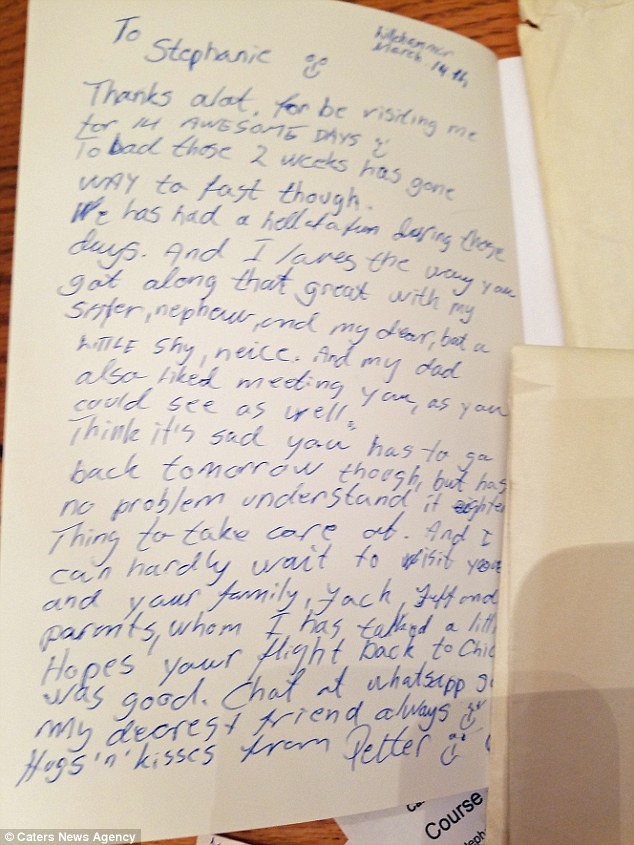 Lillehammer
March 14th
To
Stephanie
Thanks alot, for be visiting me
for 14 AWESOME DAYS
To bad those 2 weeks has gone
WAY to fast though.
We has had a hellofa fun during these
days. And I loves the way you
got along that great with my
sister, nephew, and my dear, but a
little shy, neice. And my dad
also liked meeting you, as you
could see as well.
Think it's sad you has to go
back tomorrow though, but has
no problem understand it eighter
Thing to take care of. And I
can hardly wait to visit you
and your family, Jack, Jeff and
parents, whom I has talked a
Hopes your flight back to
was good. Chat at whatsapp
My dearest friend always
Hugs 'n' kisses from Petter
Course
© Caters News Agency